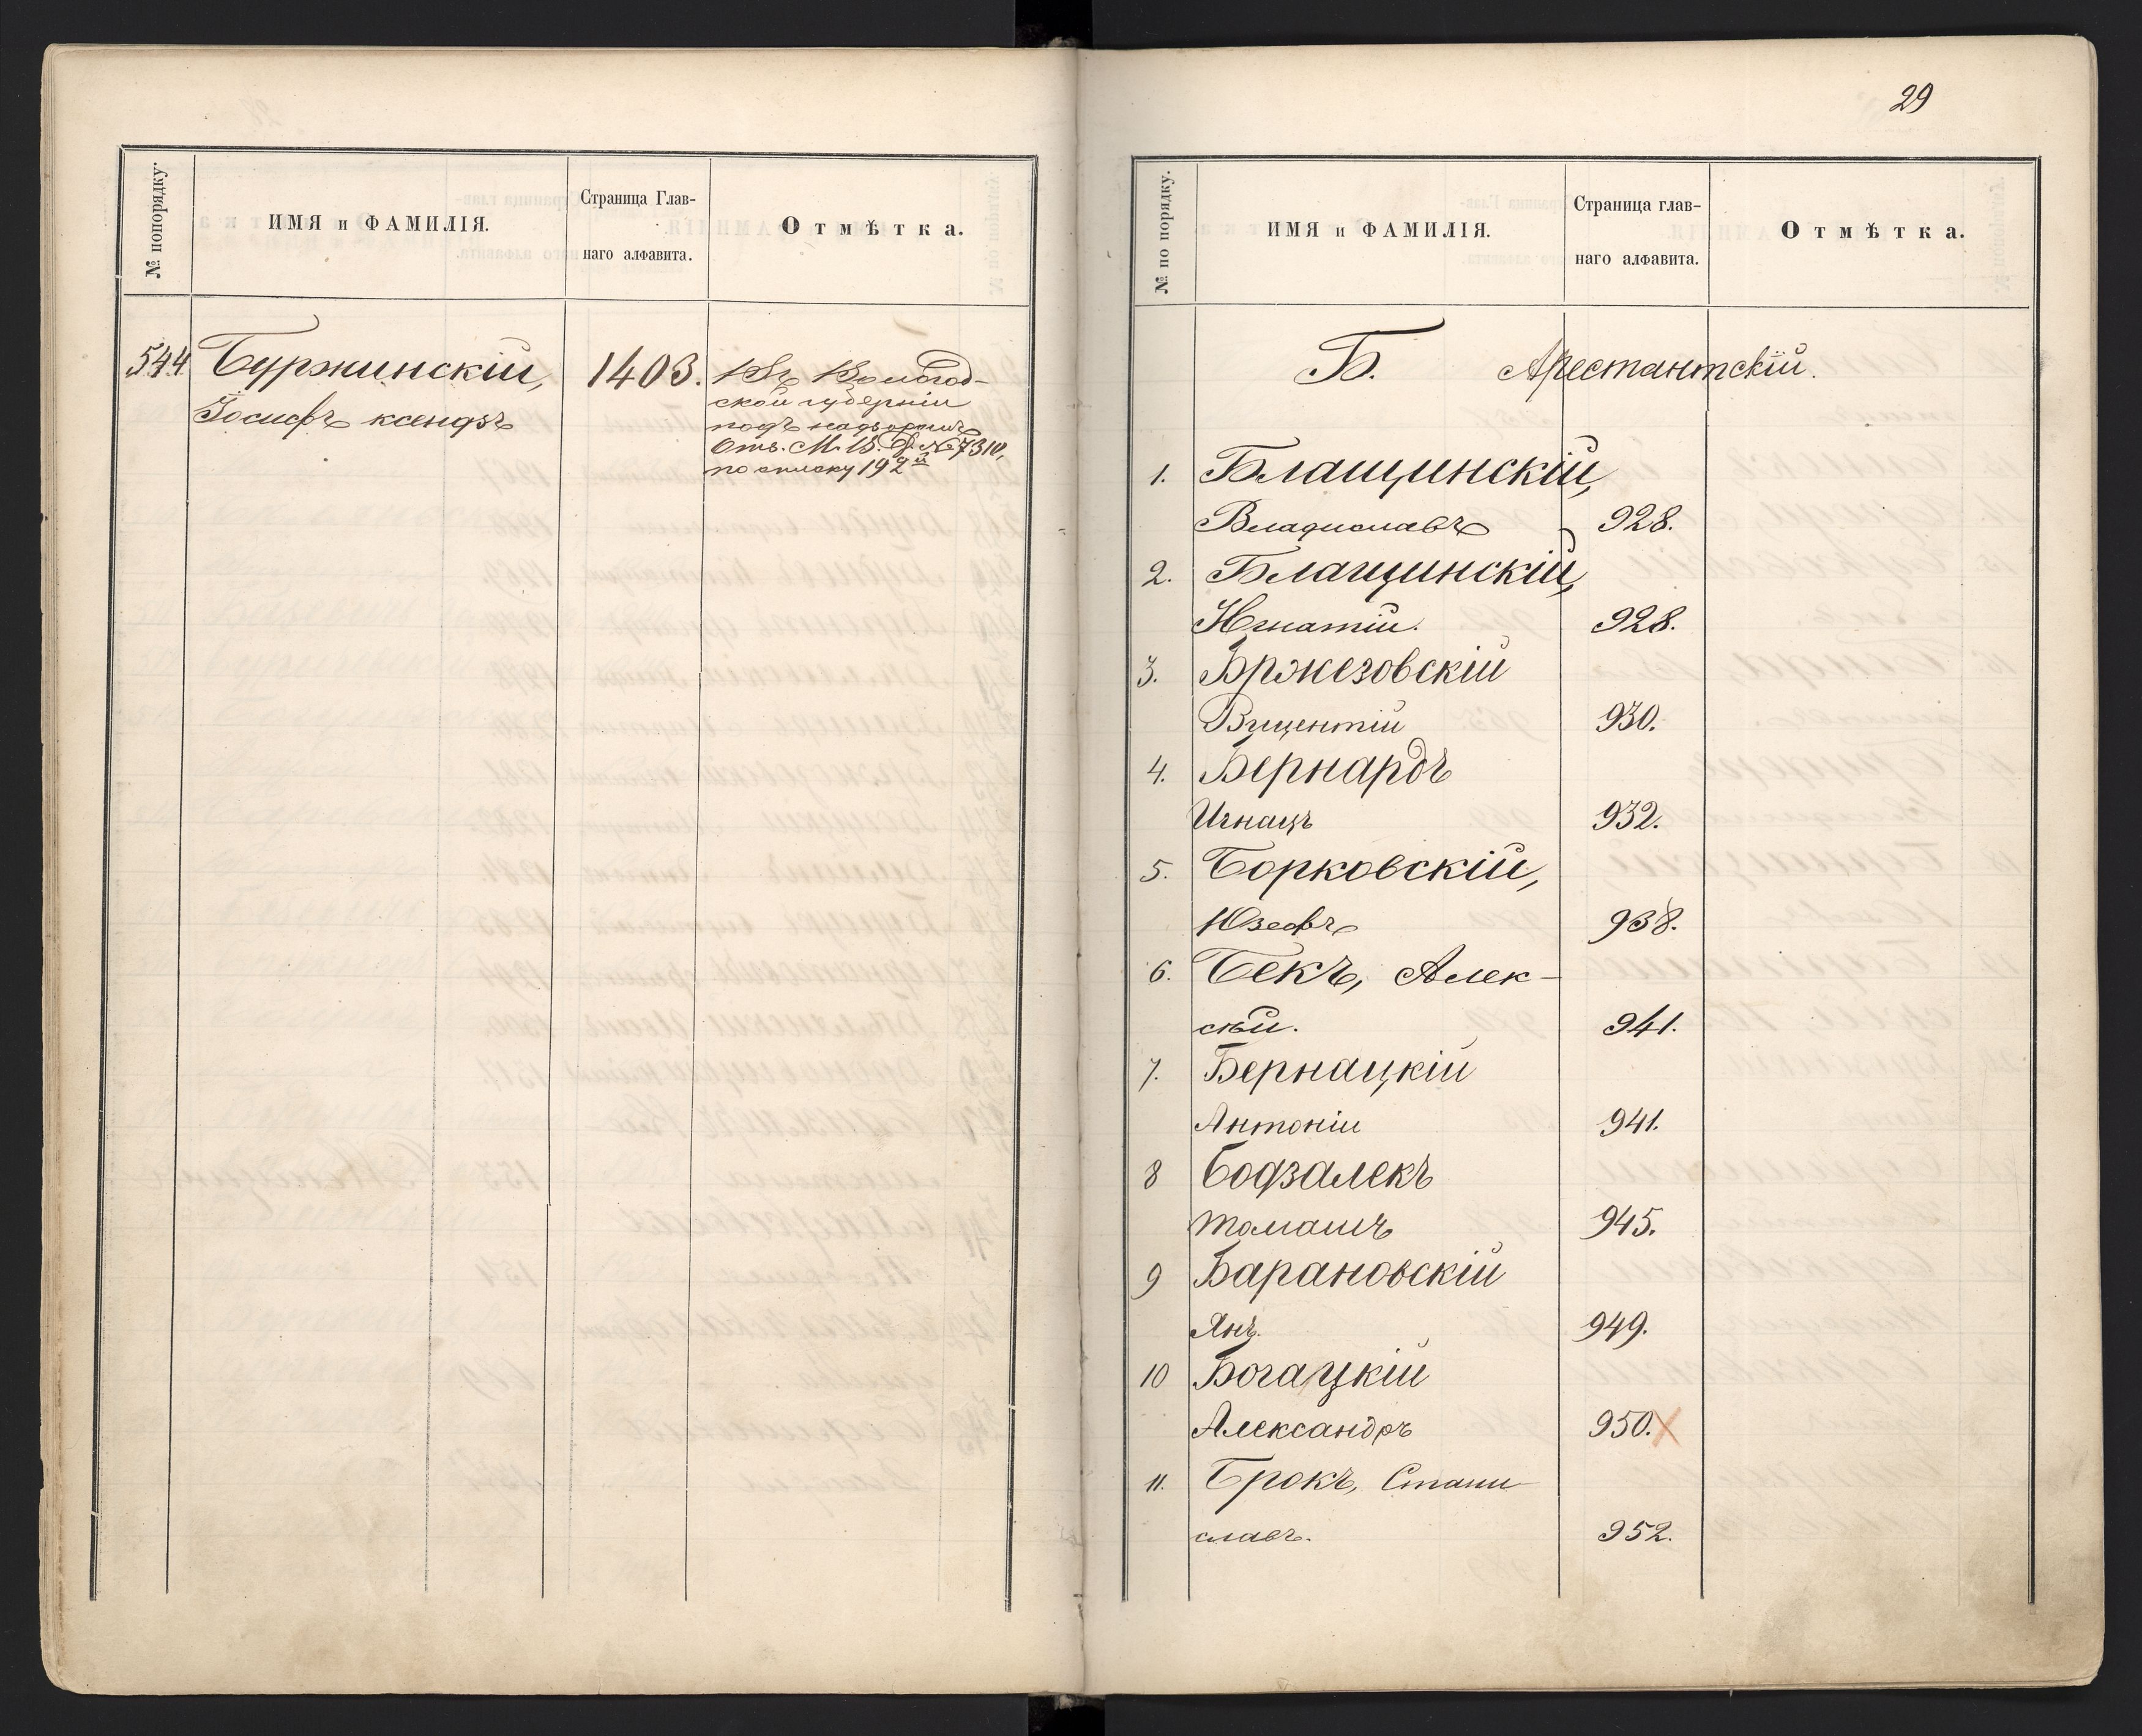 № попорядку.
ИМЯ и ФАМИЛІЯ.
Страница Глав-
наго алфавита.
Отмѣтка.
544. Буржинскій, 1403. Въ Вологод-
Іосифъ ксендзъ ской губерніи
подъ надзоромъ
Отз. М. В. Д. № 7310,
по списку 192й
29
№ по порядку.
ИМЯ и ФАМИЛІЯ.
Страница глав-
наго алфавита.
Отмѣтка.
Б. Арестантскій.
1. Блащинскій,
Владиславъ 928.
2. Блащинскій,
Игнатій. 928.
3. Бржезовскій
Вицентій 930.
4. Бернардъ
Игнацъ 932.
5. Борковскій,
Юзефъ 938.
6. Бекъ, Алек-
сѣй. 941.
7. Бернацкій
Антоній 941.
8 Бодзалекъ
Томашъ 945.
9 Барановскій
Янъ. 949.
10 Богацкій
Александръ 950.
11. Брокъ, Стани-
славъ. 952.